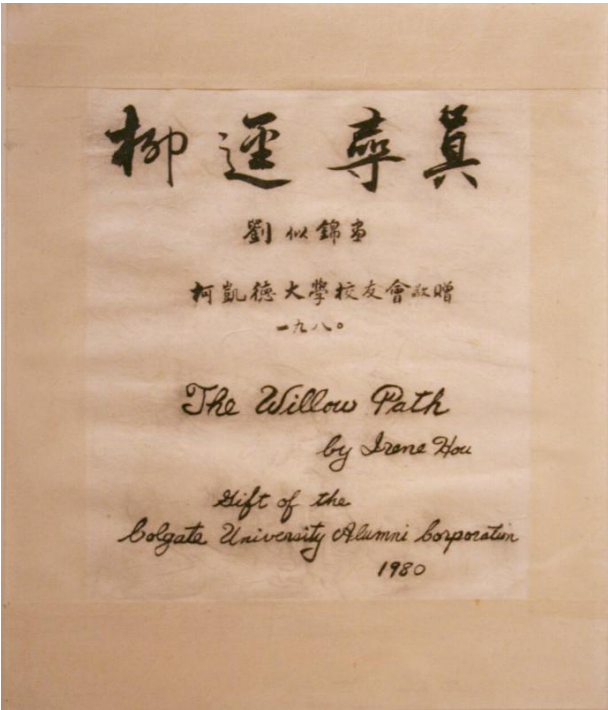 柳逕尋真
劉似錦畫
柯凱德大學校友會敬贈
一九八〇
The Willow Path
by Irene Hou
Gift of the
Colgate University Alumni Corporation
1980